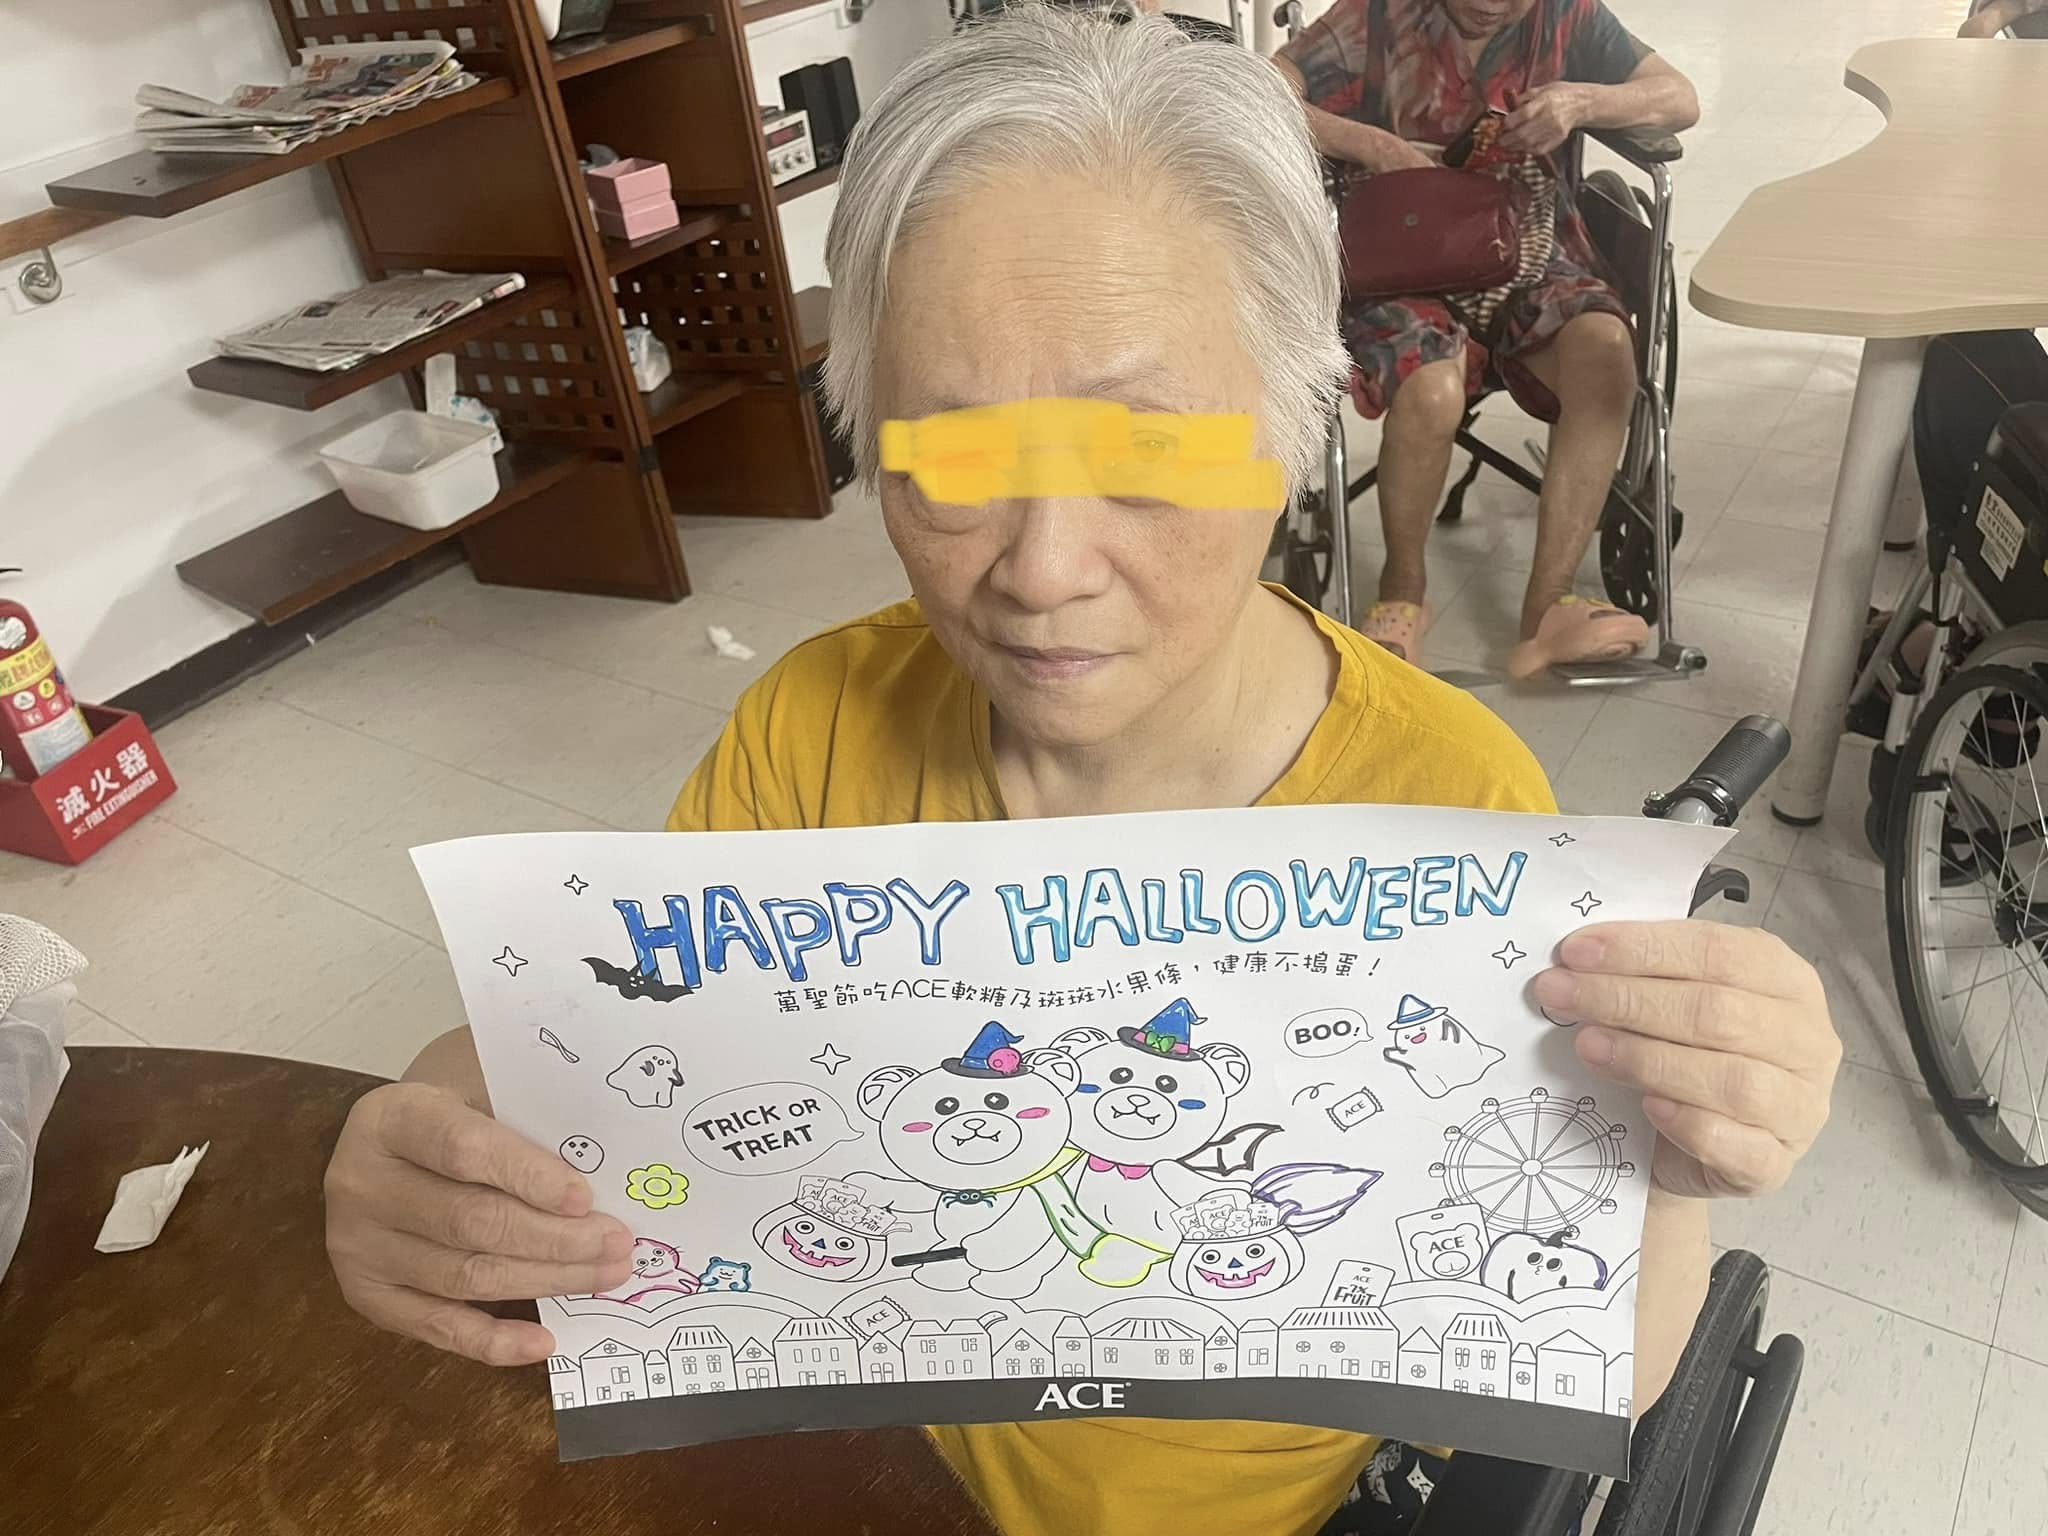 HAPPY HALLOWEEN
萬聖節吃ACE軟糖及斑斑水果條，健康不搗蛋！
BOO!
TRICK OR
TREAT
ACE
ACE
ACE
7x
FRUIT
ACE
7x
FRUIT
ACE
ACE
7x
FRUIT
ACE
ACE
滅火器
FIRE EXTINGUISHER